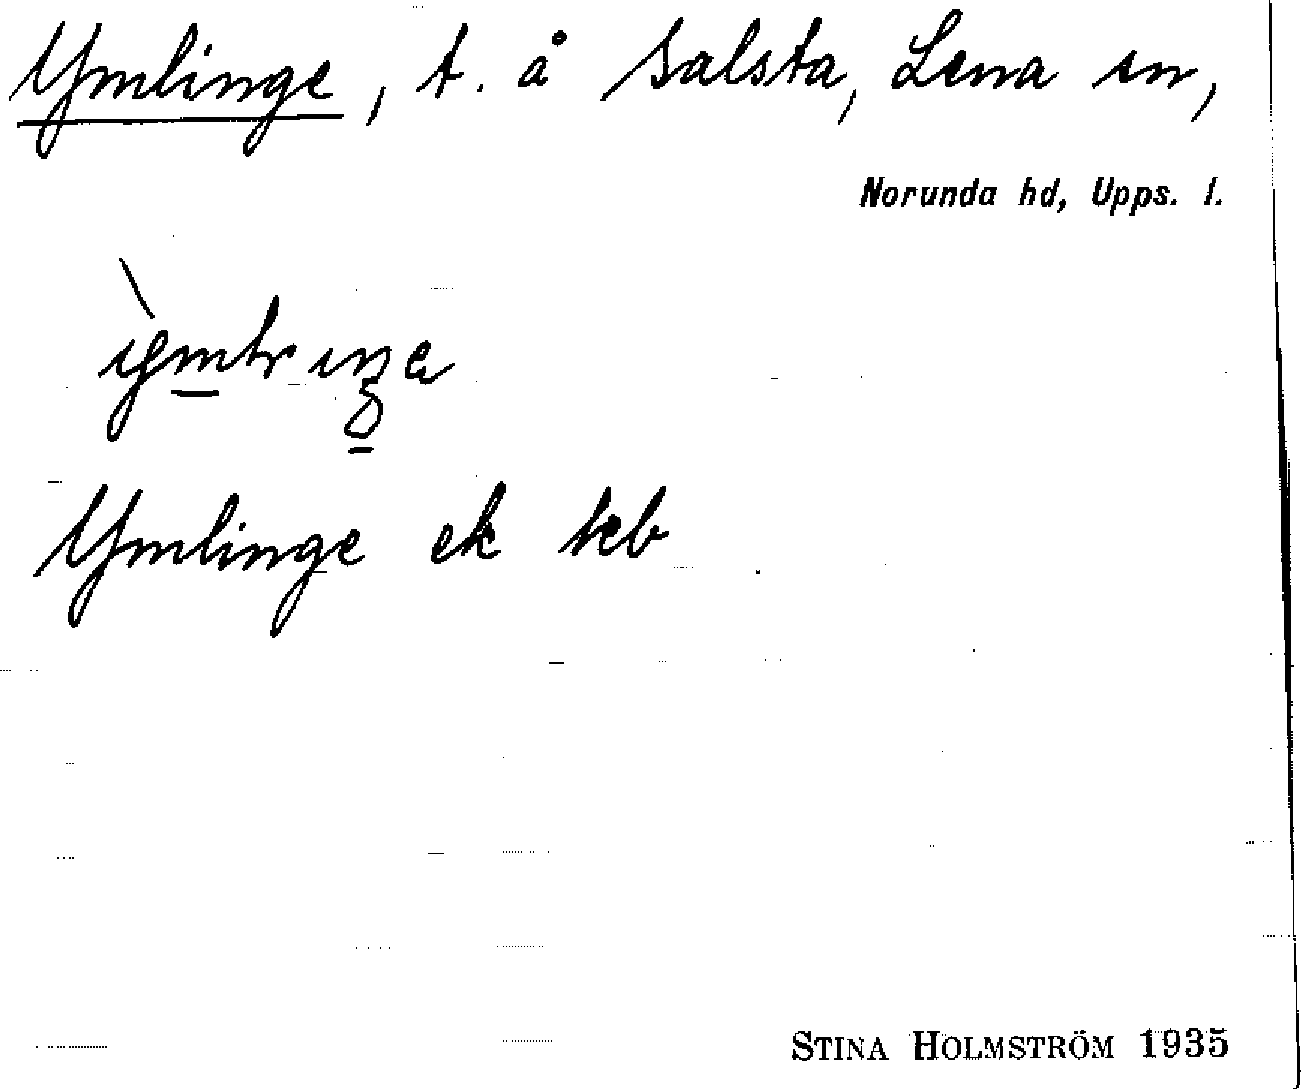 Ymlinge, t. å Salsta, Lena sn,
Norunda hd, Upps. l.
Ymlinge ek keb
STINA HOLMSTRÖM 1935